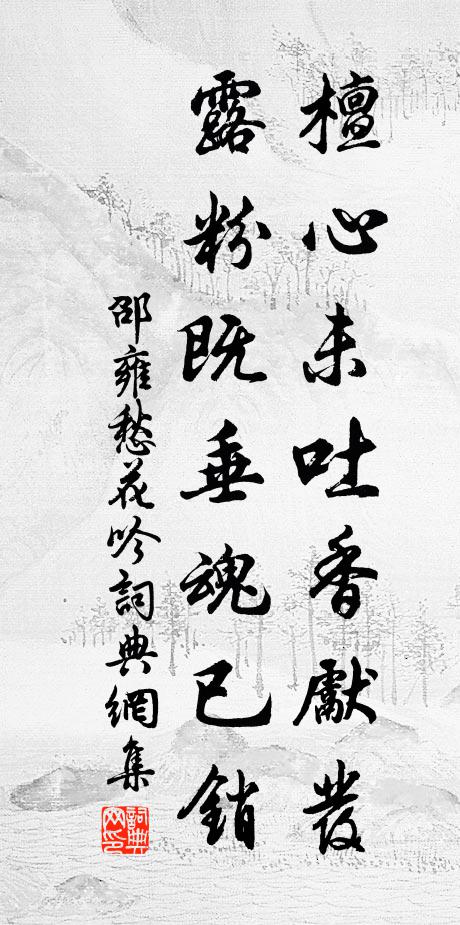 檀心未吐香獻發
露粉既垂魂已銷
邵雍愁花吟詞典網集
詞典
网印